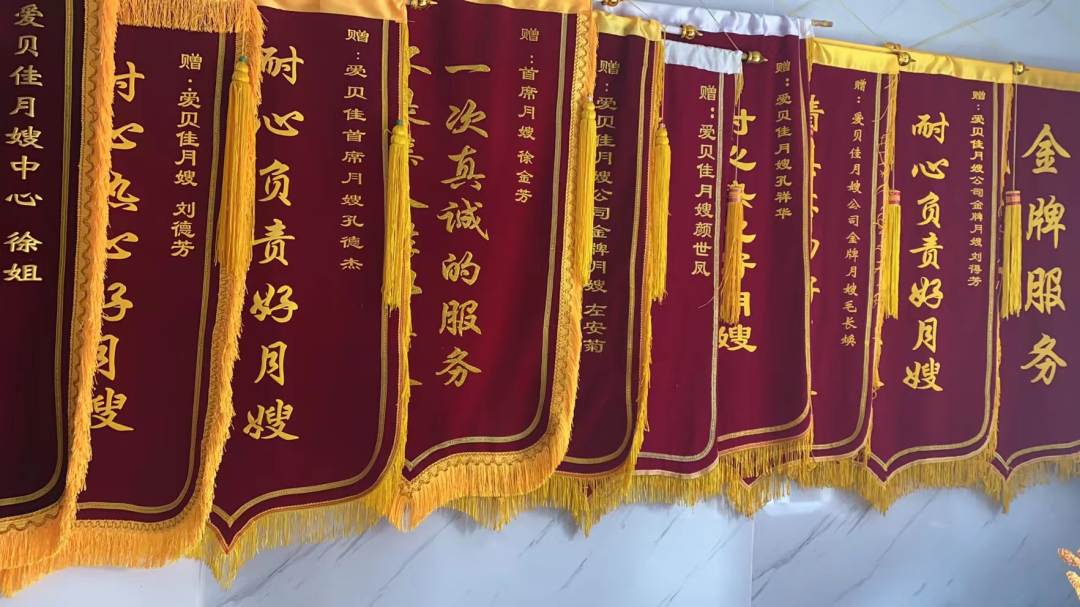 爱贝佳月嫂中心 徐姐
赠:爱贝佳月嫂 刘德芳
耐心热心好月嫂
赠:爱贝佳首席月嫂孔德杰
耐心负责好月嫂
赠:首席月嫂 徐金芳
一次真诚的服务
赠:爱贝佳月嫂公司金牌月嫂 左安菊
赠:爱贝佳月嫂颜世凤
赠:爱贝佳月嫂孔祥华
月嫂
赠:爱贝佳月嫂公司金牌月嫂毛长焕
赠:爱贝佳月嫂公司金牌月嫂 刘得芳
耐心负责好月嫂
金牌服务